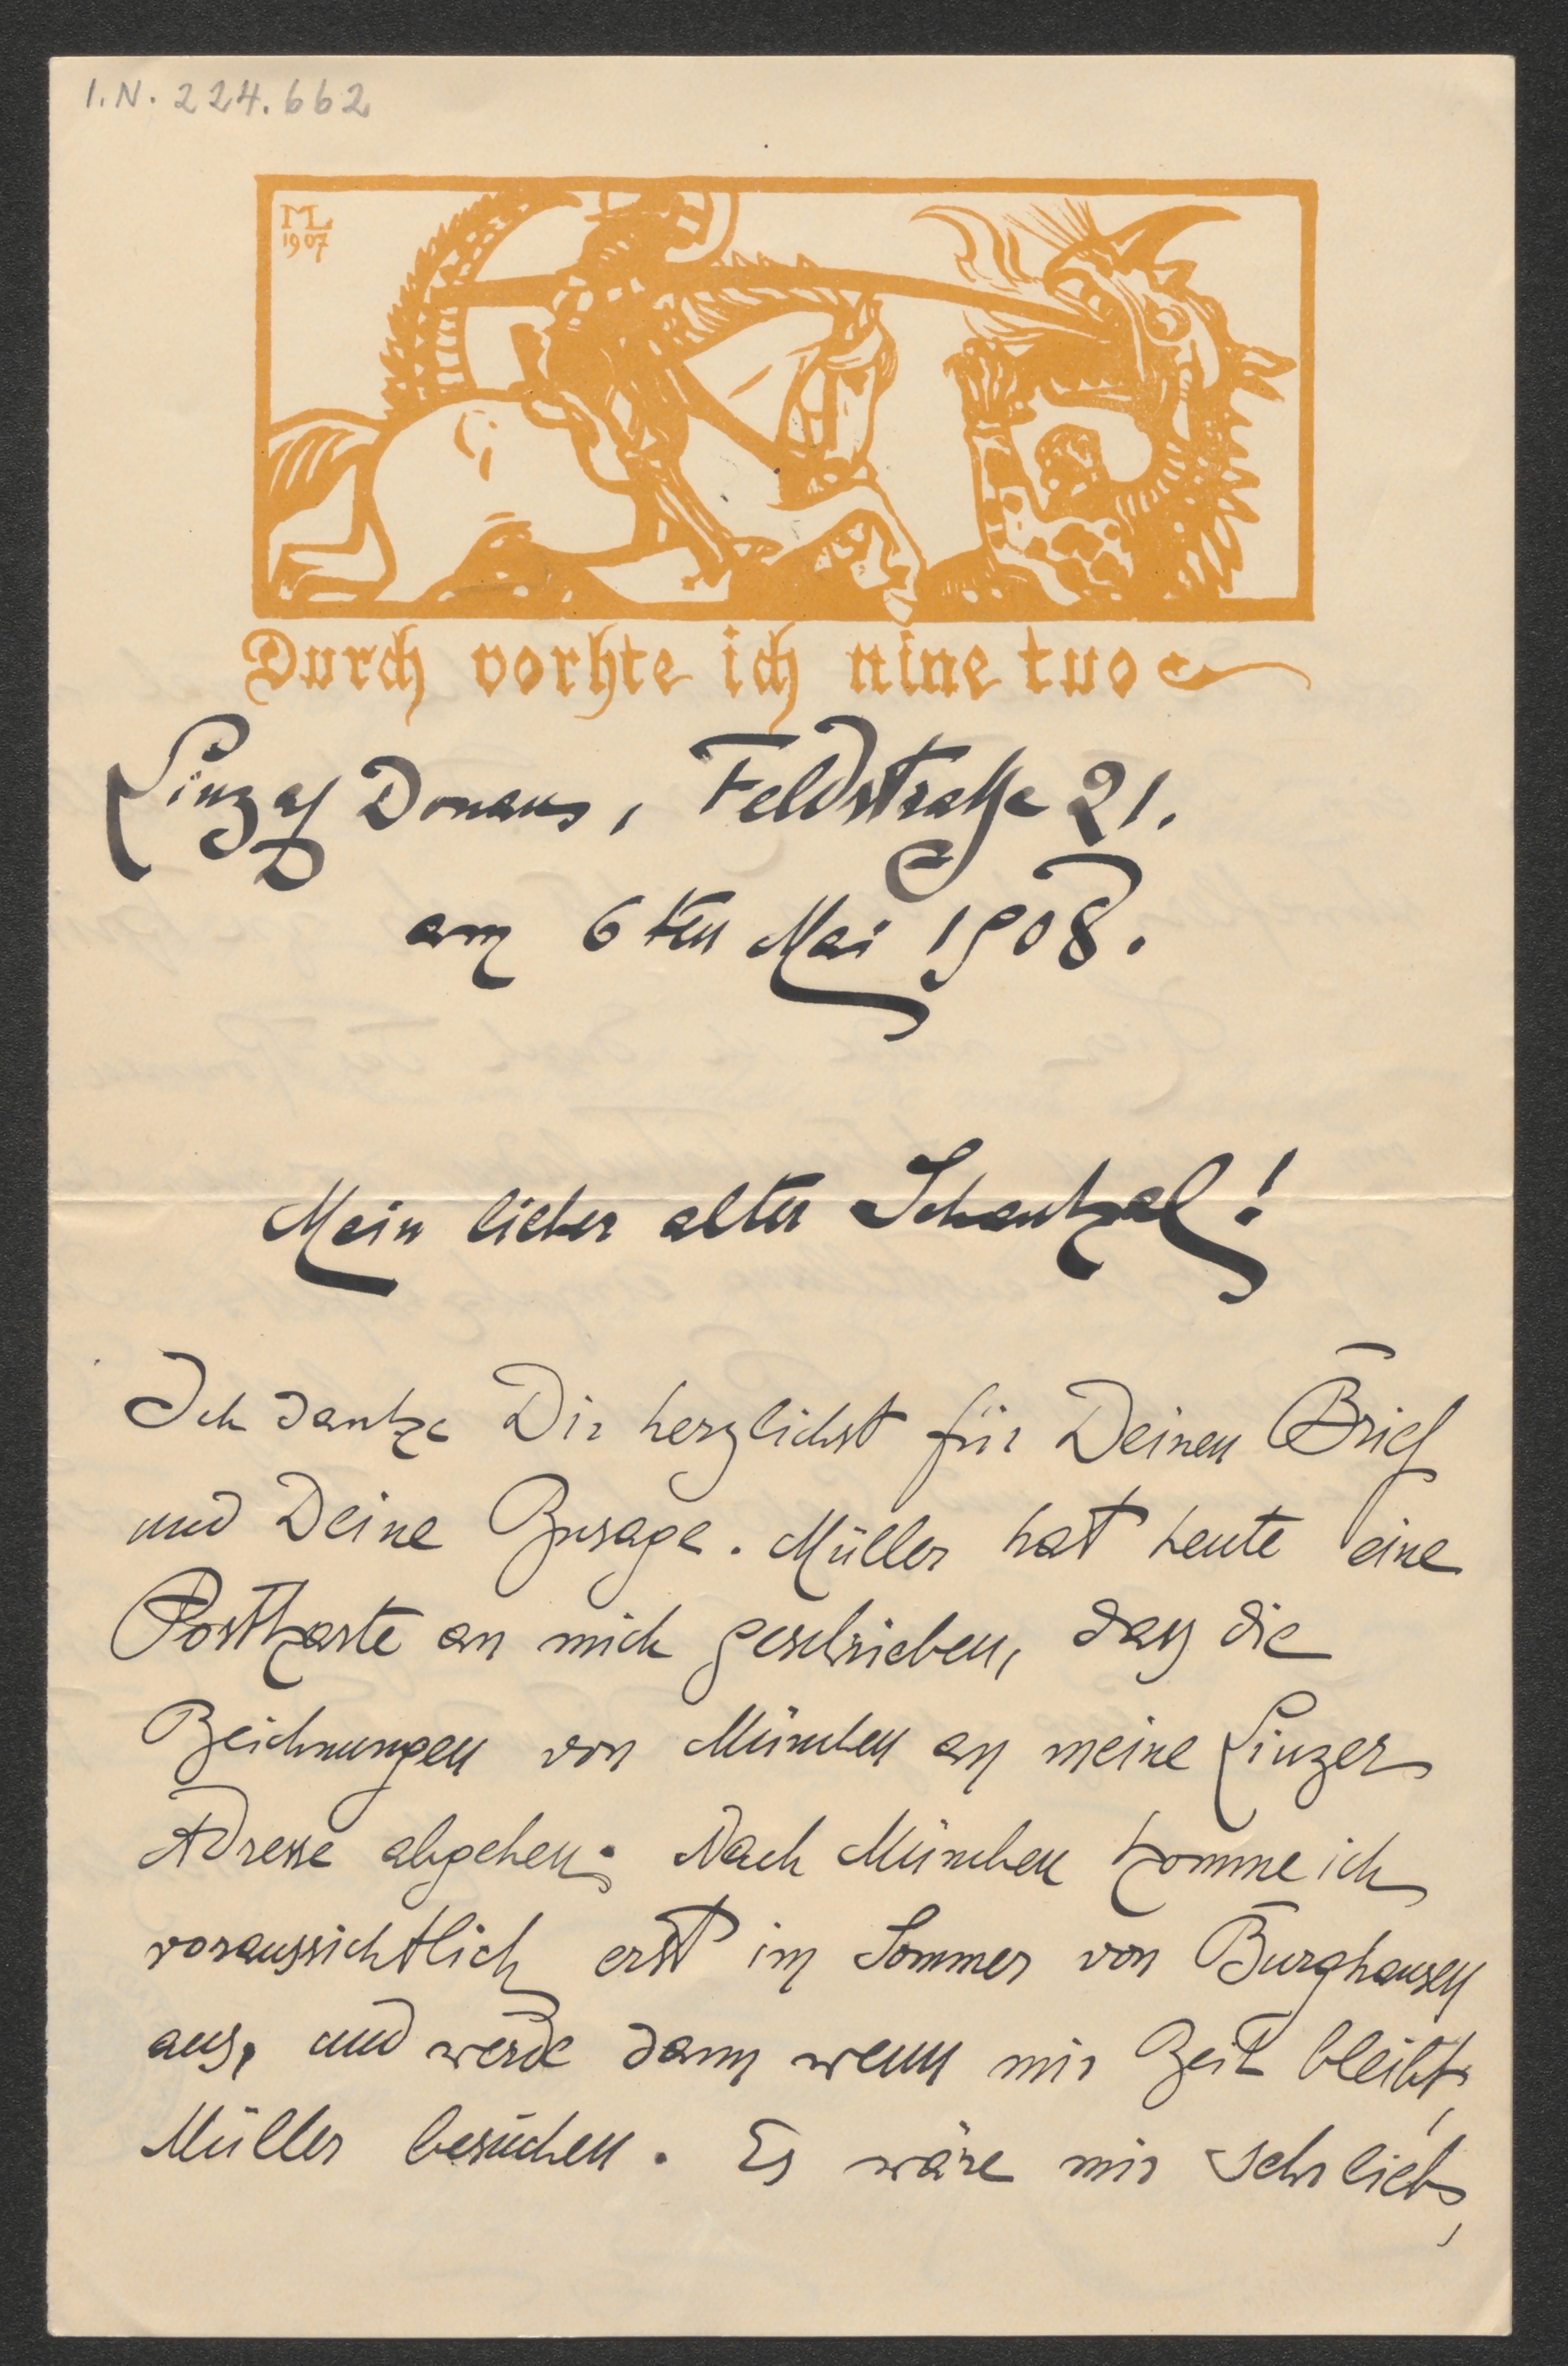 I.N. 224.662
ML
1907
Durch vorhte ich nine tuo
Linz a/ Donau, Feldstraße 21.
am 6ten Mai 1908.
Mein lieber alter Schantzel!
Ich danke Dir herzlichst für Deinen Brief
und Deine Zusage. Müller hat heute eine
Postkarte an mich geschrieben, dass die
Zeichnungen von München an meine Linzer
Adresse abgehen. Nach München komme ich
voraussichtlich erst im Sommer von Burghausen
aus, und werde dann wenn mir Zeit bleibt,
Müller besuchen. Es wäre mir sehr lieb,